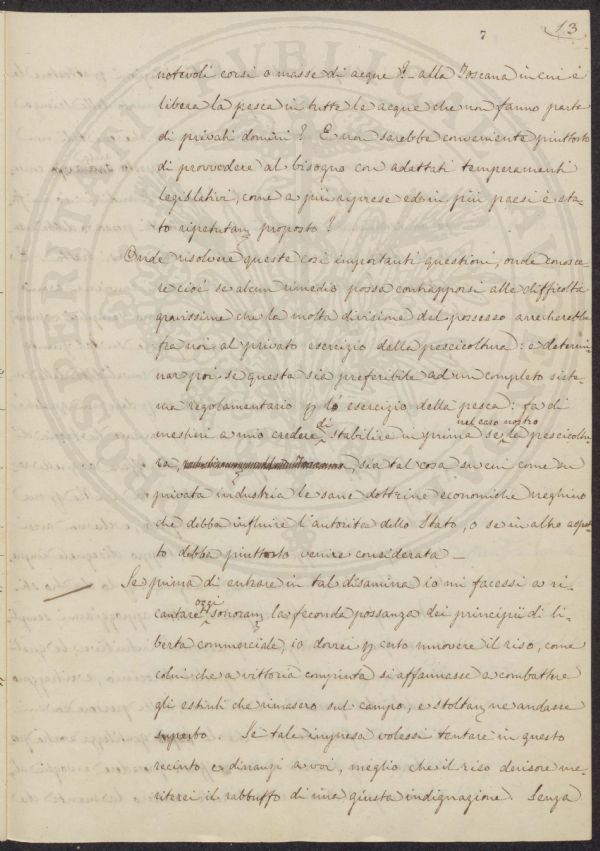 7 13
notevoli corsi o masse di acque? alla Toscana in cui è
libera la pesca in tutte le acque che non fanno parte
di privati domini? E non sarebbe conveniente piuttosto
di provvedere al bisogno con adattati temperamenti
legislativi, come a più riprese ed in più paesi è sta-
to ripetutam proposto?
Onde risolvere queste così importanti questioni, onde conosce-
re cioè se alcun rimedio possa contrapporsi alle difficoltà
gravissime che la molta divisione del possesso arrecherebbe
fra noi al privato esercizio della pescicoltura: e determi-
nar poi se questa sia preferibile ad un completo siste-
ma regolamentario p lo esercizio della pesca: fa di
mestieri a mio credere di stabilire in prima se nel caso nostro la pescicoltu-
ra, sia tal cosa su cui come su
privata industria le sane dottrine economiche neghino
che debba influire l'autorità dello Stato, o se in altro aspet-
to debba piuttosto venire considerata _
Se prima di entrare in tal disamina io mi facessi a ri-
cantare oggi sonoram la feconda possanza dei principii di li-
bertà commerciale, io dovrei p certo muovere il riso, come
colui che a vittoria compiuta si affannasse a combattere
gli estinti che rimasero sul campo, e stoltam ne andasse
superbo. Se tale impresa volessi tentare in questo
recinto e dinanzi a voi, meglio che il riso derisore me-
riterei il rabbuffo di una giusta indignazione. Senza
PROSPERITATI PVBLICAE AV